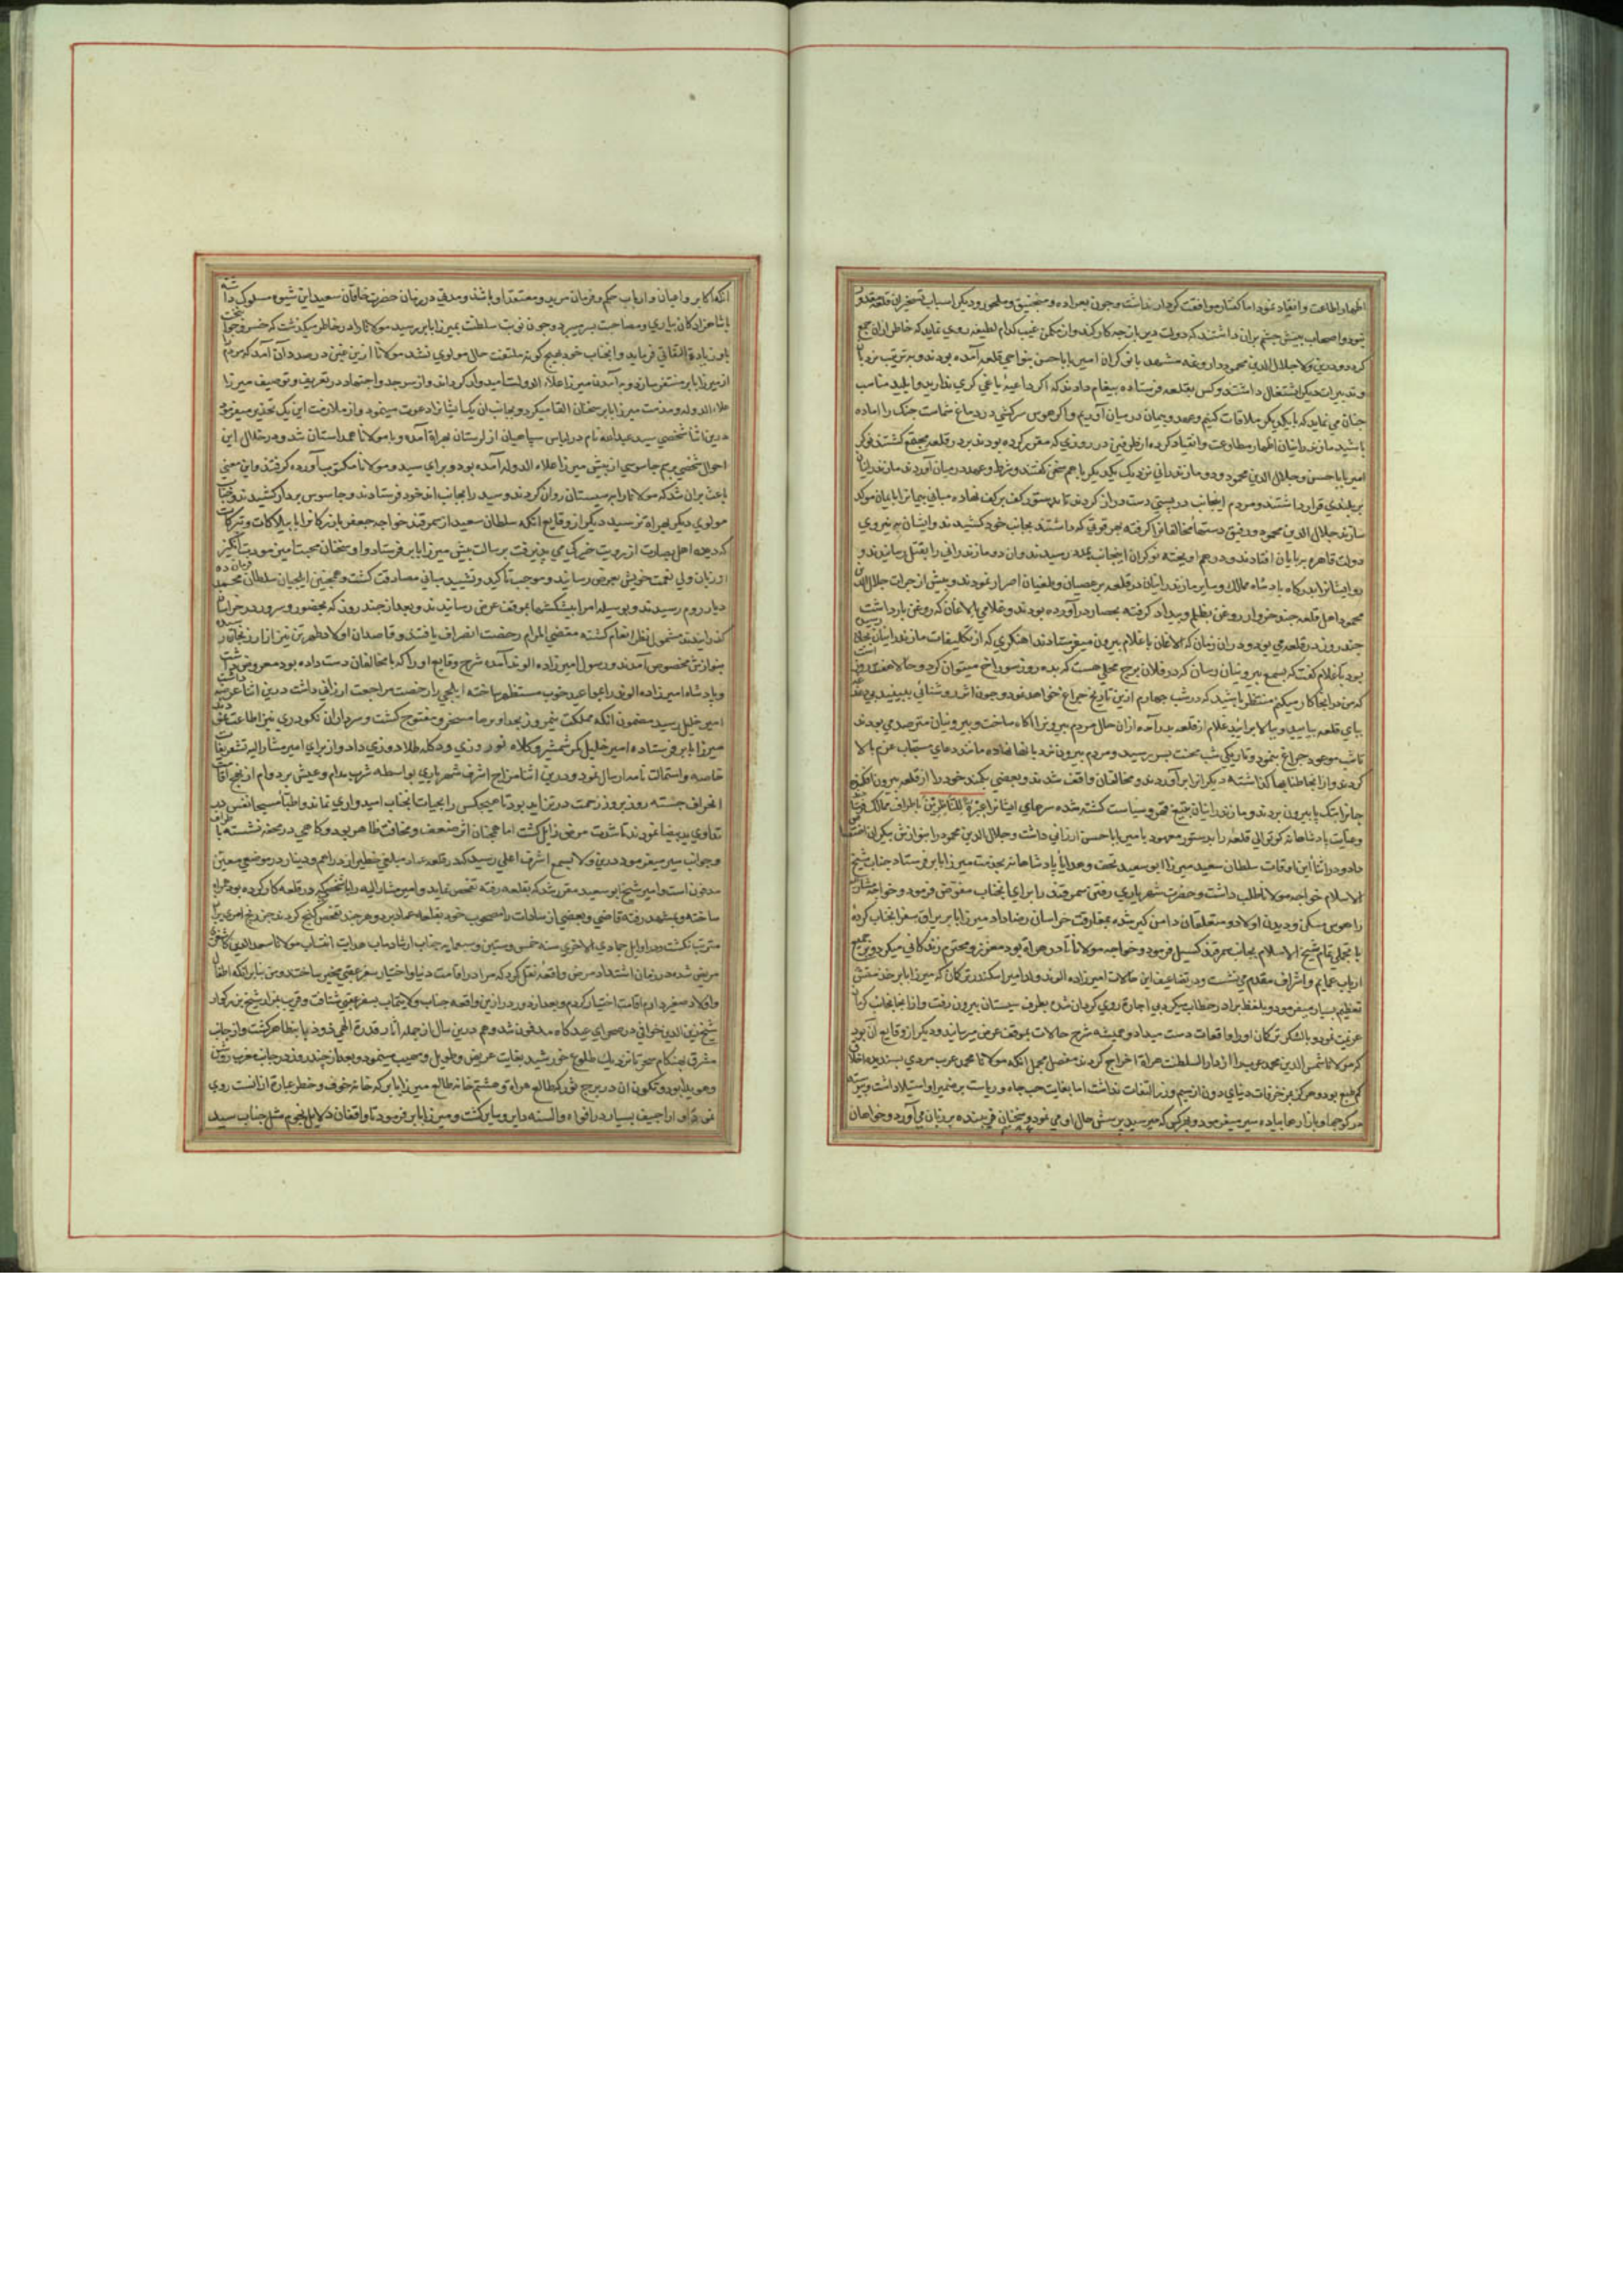 اظهار اطاعت و انقیاد نمود اما گفتار موافقت کردار نداشت و چون بعراده و منجنیق و ملجور و دیگر اسباب تسخیر آن قلعه مقدور
نبود و اصحاب جیش چشم بران داشتند که دولت درین باره چه کار کند و از ممکن غیب کدام لطیفه روی نماید که خاطر ازان جمع
کردد و درین ولا جلال الدین محمود داروغه مشهد با نوکران امیر بابا حسن بنواحی قلعه آمده بودند و بترتیب نردبان
و تدبیرات دیگر اشتغال داشتند و کس بقلعه فرستاده پیغام دادند که اگر داعیه یاغی گری ندارید و ایلید مناسب
چنان می نماید که با یکدیگر ملاقات کنیم و عهد و پیمان درمیان آوریم و اگر هوس سرکشی در دماغ شماست جنگ را آماده
باشید مازندرانیان اظهار مطاوعت و انقیاد کرده از طرفین در روزی که مقرر کرده بودند بر در قلعه مجتمع گشتند نوکر
امیر بابا حسن و جلال الدین محمود و دو مازندرانی نزدیک یکدیگر با هم سخن گفتند و شرط و عهد درمیان آوردند مازندرانیان
بر بلندی قرار داشتند و مردم اینجانب در پستی دست دراز کردند تا بدستور کف بر کف نهاده مبانی پیمانرا بایمان موکد
سازند جلال الدین محمود و رفیقش دستهای مخالفانرا گرفته بهر قوتی که داشتند بجانب خود کشیدند و ایشان به نیروی
دولت قاهره بپایان افتادند و در هم آویخته نوکران اینجانب بمدد رسیدند و آن دو مازندرانی را بقتل رسانیدند و
محمود اهل قلعه چند خروار روغن بظلم و بیداد گرفته بحصار درآورده بودند و غلامی با الاغان که روغن بار داشت
بود با غلام گفت که بسمع بیرونیان رسان که در فلان برج محلی هست که بده روز سوراخ میتوان کرد و حالا هفت روز است
که من در آنجا کار میکنم منتظر باشید که در شب چهارم ازین تاریخ چراغ خواهد نمود و چون اثر روشنائی ببینید
بپای قلعه بیایید و ببالا برآیید غلام از قلعه بدر آمده ازان حال مردم بیرونرا آگاه ساخت و بیرونیان مترصد می بودند
تا شب موعود چراغ بنمود و تاریکی شب محنت بسر رسید و مردم بیرون نردبانها نهاده مانند دعای مستجاب عزم بالا
کردند و از آنجا طنابها گذاشته دیگرانرا برآوردند و مخالفان واقف شدند و بعضی بکمند خود را از قلعه بیرون افکنده
جانرا بتک پا بیرون بردند و مازندرانیان بتیغ قهر و سیاست کشته شده سرهای ایشانرا عبرة للناظرین باطراف ممالک فرستاد
و عنایت پادشاهانه کوتوالی قلعه را بدستور معهود بامیر بابا حسن ارزانی داشت و جلال الدین محمود را بنوازش بیکران
داد و در اثنا این اوقات سلطان سعید میرزا ابو سعید تحف و هدایا پادشاهانه بخدمت میرزا بابر فرستاد جناب شیخ
الاسلام خواجه مولانا طلب داشت و حضرت شهریاری رفتن سمرقند را برای آنجناب مفوض فرمود و خواجه
را هوس مسکن و دیدن اولاد و متعلقان دامن گیر شده بمفارقت خراسان رضا داد میرزا بابر یراق سفر آنجناب کرده
با تجمل تمام شیخ الاسلام بجانب سمرقند گسیل فرمود و خواجه مولانا تا در هراة بود معزز و محترم زندگانی میکرد و بر جمیع
ارباب عمایم و اشراف مقدم می نشست و در تضاعیف این حالات امیرزاده الوند ولد امیر اسکندر ترکمان که میرزا بابر در خدمتش
تعظیم بسیار میفرمود و بلفظ برادر خطاب میکرد بی اجازة روی گردان شده بطرف سیستان بیرون رفت و از آنجا بجانب کرمان
عزیمت نمود و با لشکر ترکمان او را واقعات دست میداد و همیشه شرح حالات بموقف عرض میرسانید و دیگر از وقایع آن بود
که مولانا شمس الدین محمد عرب را از دار السلطنت هراة اخراج کردند مفصل مجمل آنکه مولانا محمد عرب مردی پسندیده اخلاق
کم طمع بود و هرگز بمزخرفات دنیای دون از سیم و زر التفات نداشت اما بغایت حب جاه و ریاست بر ضمیر او استیلا داشت
در کوچها و بازارها پیاده سیر میفرمود و بهر کس که میرسید پرسش حال او می نمود و سخنان فریبنده بر زبان می آورد و خواهان
آنکه اکابر و اعیان و ارباب حکم و فرمان مرید و معتقد او باشند و مدتی در زمان حضرت خاقان سعید این شیوه مسلوک داشته
با شاهزادگان بیاری و مصاحبت بسر میبرد و چون نوبت سلطنت بمیرزا بابر رسید مولانا را در خاطر میگذشت که خسرو جوان بخت
باو زیادة التفاتی فرماید و آنجناب خود بهیچ گونه ملتفت حال مولوی نشد مولانا ازین غبن در صدد آن آمد که مردم
از میرزا بابر متنفر سازد و به آمدن میرزا علاء الدوله امیدوار گرداند و از سر جد و اجتهاد در تعریف و توصیف میرزا
علاء الدوله و مذمت میرزا بابر سخنان القا میکرد و بجانب آن یک ایشانرا دعوت مینمود و از ملازمت این یک تحذیر میفرمود
درین اثنا شخصی سید عبدالله نام در لباس سپاهیان از لرستان بهراة آمده و با مولانا همداستان شد و در خلال این
احوال شخصی برسم جاسوسی از پیش میرزا علاء الدوله آمده بود و برای سید و مولانا مکتوب آورده گرفتند و این معنی
باعث بران شد که مولانا را به سیستان روان کردند و سید را بجانب اندخود فرستادند و جاسوس بردار کشیدند و جناب
مولوی دیگر بهراة نرسید دیگر از وقایع آنکه سلطان سعید از سمرقند خواجه جعفر بازرگانرا با بیلاکات و تبرکات
که دیده اهل بصارت از رویت خیرگی می پذیرفت برسالت پیش میرزا بابر فرستاد و او سخنان محبت آمیز مودت انگیز
از زبان ولی نعمت خویش بعرض رسانید و موجب تاکید و تشیید مبانی مصادقت گشت و همچنین ایلچیان سلطان محمد
دیار روم رسیدند و بوسیله امرا پیشکشها بموقف عرض رسانیدند و بعد از چند روز که بحضور و سرور در خراسان
گذرانیدند مشمول نظر انعام گشته مقضی المرام رخصت انصراف یافتند و قاصدان اولاد
بنوازش مخصوص آمدند و رسول امیرزاده الوند آمده شرح وقایع او را که با مخالفان دست داده بود معروض داشت
و پادشاه امیرزاده الوند را بمواعید خوب مستظهر ساخته ایلچی را رخصت مراجعت ارزانی داشت درین اثنا
امیر خلیل رسید مضمون آنکه مملکت نیمروز بحدافیرها مسخر و مفتوح گشت و سرداران نکودری نیز اطاعت
میرزا بابر فرستاده امیر خلیل کمر شمشیر و کلاه نوروزی و دکله طلادوزی داد و از برای امیر مشار الیه تشریفات
خاصه و استمالت نامه ارسال نمود و درین اثنا مزاج اشرف شهریاری بواسطه شرب مدام و عیش بر دوام از نهج
انحراف جسته روز بروز زحمت در تزاید بود تا هیچکس را بحیات آنجناب امیدواری نماند و اطبا مسیحا نفس در
تداوی ید بیضا نمودند تا شدت مرض زایل گشت اما همچنان اثر ضعف و نحافت ظاهر بود و گاهی در محفه نشسته
و جوانب سیر میفرمود درین ولا بسمع اشرف اعلی رسید که در قلعه عماد مبلغی خطیر از دراهم و دینار در موضعی معین
مدفون است و امیر شیخ ابو سعید مقرر شد که بقلعه رفته تفحص نماید و امیر مشار الیه را با شخصی که در قلعه کار کرده بود همراه
ساخته و بمشهد رفته قاضی و بعضی از سادات را مصحوب خود بقلعه عماد برد و هر چند تفحص گنج کردند جز رنج امری بران
مترتب نگشت و در اوایل جمادی الاخری سنه خمس و ستین و سبعمایه جناب ارشاد ماب هدایت انتساب مولانا سعد الدین کاشغری
مریض شده در زمان اشتداد مرض واقعه نقل کرد که مرا در اقامت دنیا و اختیار سفر عقبی مخیر ساختند و من بنا بر آنکه اطفال
و اولاد صغیر دارم اقامت اختیار کردم و بعد از دو روز ازین واقعه جناب ولایتماب بسفر عقبی شتافت و قریب بمزار شیخ بزرگوار
شیخ زین الدین خوافی در صحرای عیدگاه مدفون شد و هم درین سال از جمله آثار قدرة الهی ذو ذنابه ظاهر گشت و از جانب
مشرق بهنگام سحر تا نزدیک طلوع خورشید بغایت عریض و طویل و مهیب مینمود و بعد از چند روز در جانب مغرب روشن
و هویدا بود و تکون آن در برج ثور که طالع هراة و هشتم خانه طالع میرزا بابر که خانه خوف و خطر عبارة از آنست روی
نمود و اراجیف بسیار در افواه و السنه دایر و سایر گشت و میرزا بابر فرمود تا واقفان دلایل نجوم مثل جناب سید